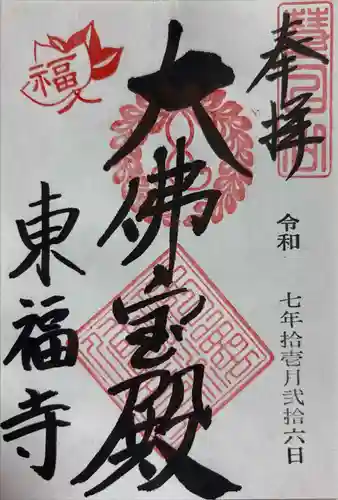 奉拝
令和 七年拾壱月弐拾六日
大佛宝殿
東福寺
福